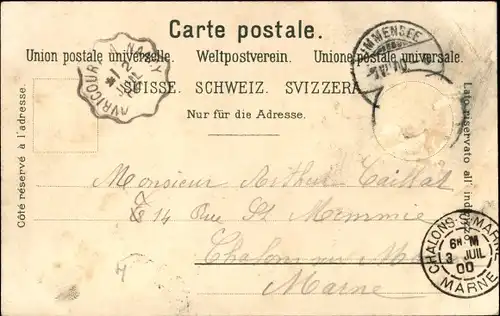 Carte postale.
Union postale universelle. Weltpostverein. Unione postale universale.
SUISSE. SCHWEIZ. SVIZZERA.
Nur für die Adresse.
Côté réservé à l'adresse.
Lato riservato all' indirizzo.
AVRICOURT
JUIL
IMMENSEE
VII 00
Monsieur Arthur Caillat
14 Rue St Memmie
Chalons sur Marne
Marne
CHALONS-S-MARNE
6H M
13 JUIL
00
MARNE